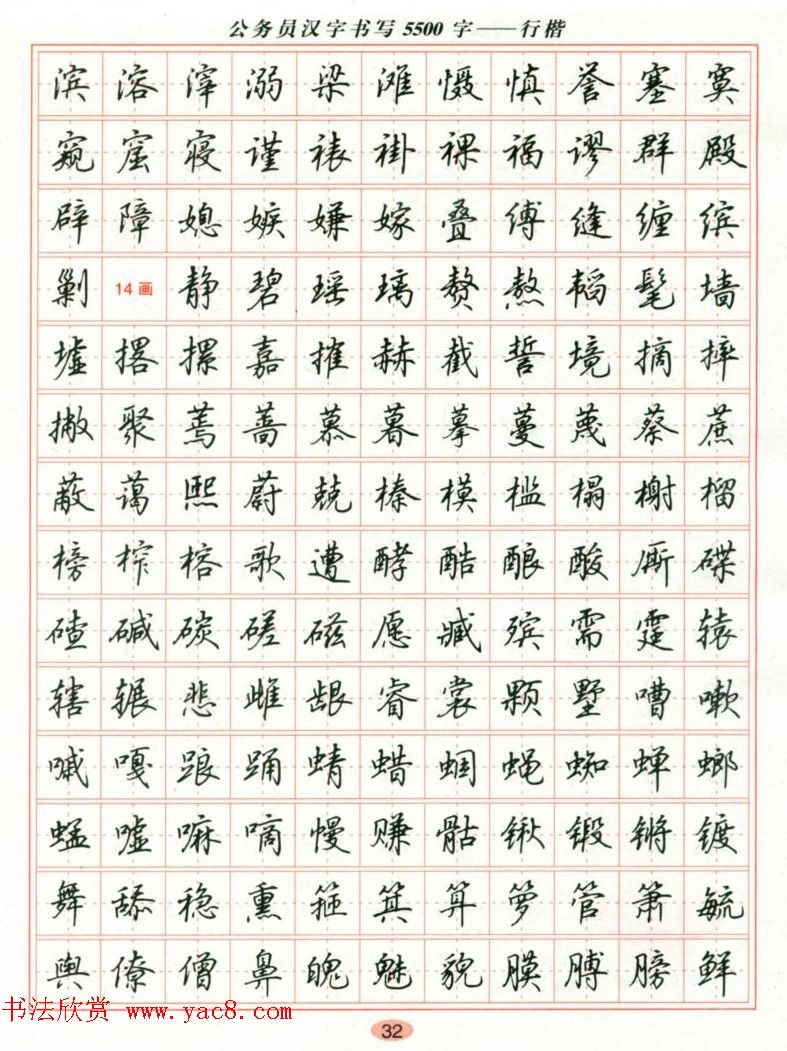 公务员汉字书写5500字——行楷
滨溶滓溺梁滩慑慎誉塞寞
窥窟寝谨裱褂裸福谬群殿
辟障媳嫉嫌嫁叠缚缝缠缤
剿14画静碧瑶璃赘熬韬髦墙
墟撂摞嘉摧赫截誓境摘摔
撇聚蔫蔷慕暮摹蔓蔑蔡蔗
蔽蔼熙蔚兢榛模槛榻榭榴
榜榨榕歌遭酵酷酿酸厮碟
碴碱碳磋磁愿臧殡需霆辕
辖辗悲雌龈睿裳颗墅嘈嗽
嘁嘎踉踊蜻蜡蝈蝇蜘蝉螂
蜢嘘嘛嘀幔赚骷锹锻锵镀
舞舔稳熏箍箕算箩管箫毓
舆僚僧鼻魄魅貌膜膊膀鲜
书法欣赏 www.yac8.com
32